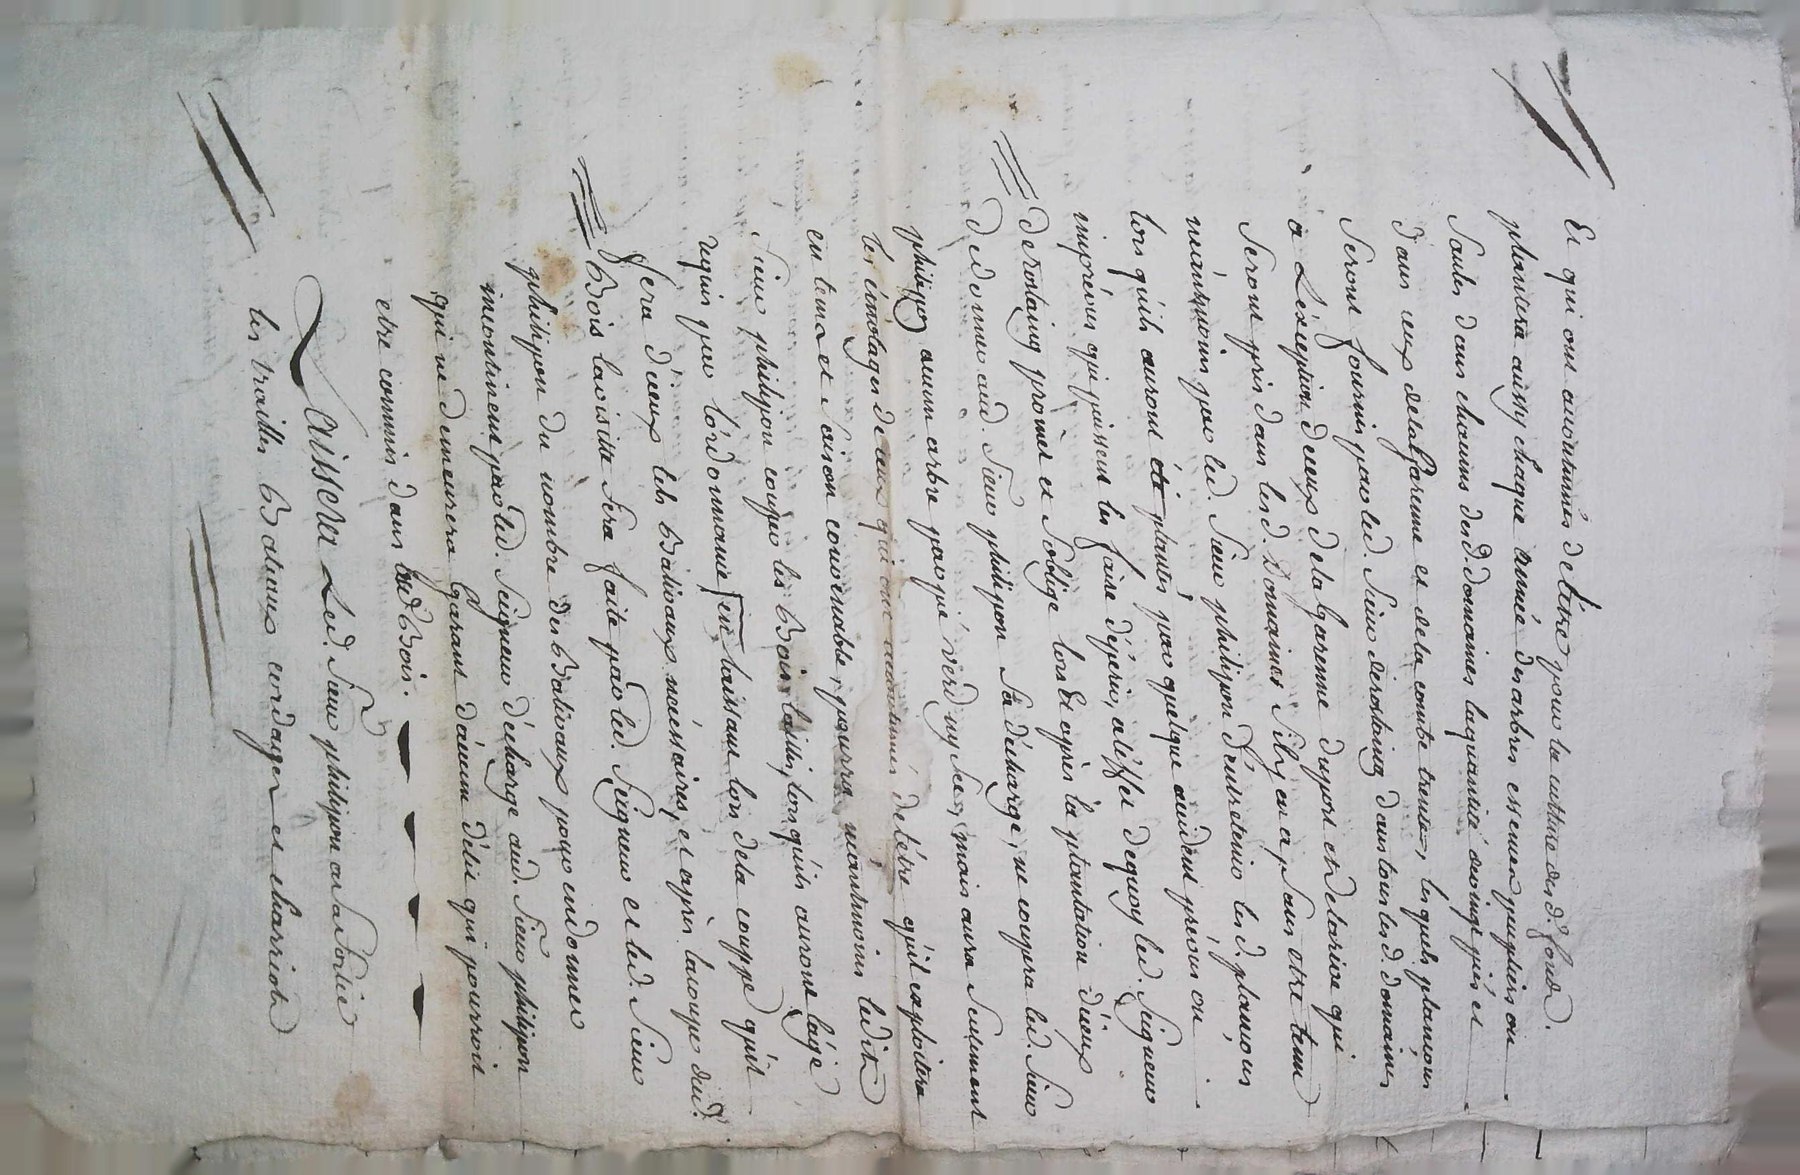 Et qui ont accoutumés de l'être pour la culture desd. fonds.
plantera aussy chaque année des arbres essence peupliers ou
Saules dans chacuns desd. domaines la quantité de vingt pieds et
dans ceux de la garenne et de la combe trente, lesquels plançons
Seront fournis par led. Sieur derostaing dans tous lesd. domaines
a L'exseption d'ceux de la garenne du port et de larive qui
Seront pris dans lesd. Domaines S'il y en a, Sans etre tenu
néantmoins par led. Sieur philipon d'entretenir lesd. plançons
lors qu'ils auront été plantés par quelque accident prévus ou
imprévus qui puissent les faire dépérir, a l'effet de quoy led. Seigneur
de rostaing promet et S'oblige lors et après la plantation d'iceux
d'en donner aud. Sieur philipon Sa décharge, ne coupera led. Sieur
philipon aucun arbre par pié verd ny sec, mais aura Seulement
les émolages de ceux qui ont accoutumés de l'être qu'il exploitera
en tems et Saison convenable, pourra néantmoins ledit
Sieur philipon couper les Bois taillis, lorsqu'ils auront l'age
requis par l'ordonnance, en laissant lors de la couppe qu'il
fera d'iceux les Balivaux nécessaires, et après la coupe dud.
Bois la visitte Sera faite par led. Seigneur et led. Sieur
philipon du nombre des Balivaux pour en donner
incontinent par led. Seigneur décharge aud. Sieur philipon
qui ne demeurera garant d'aucun délit qui pourroit
etre commis dans led. Bois.
Laissera Led. Sieur philipon a sa Sortie
les trailles Bateaux cordages et charriots